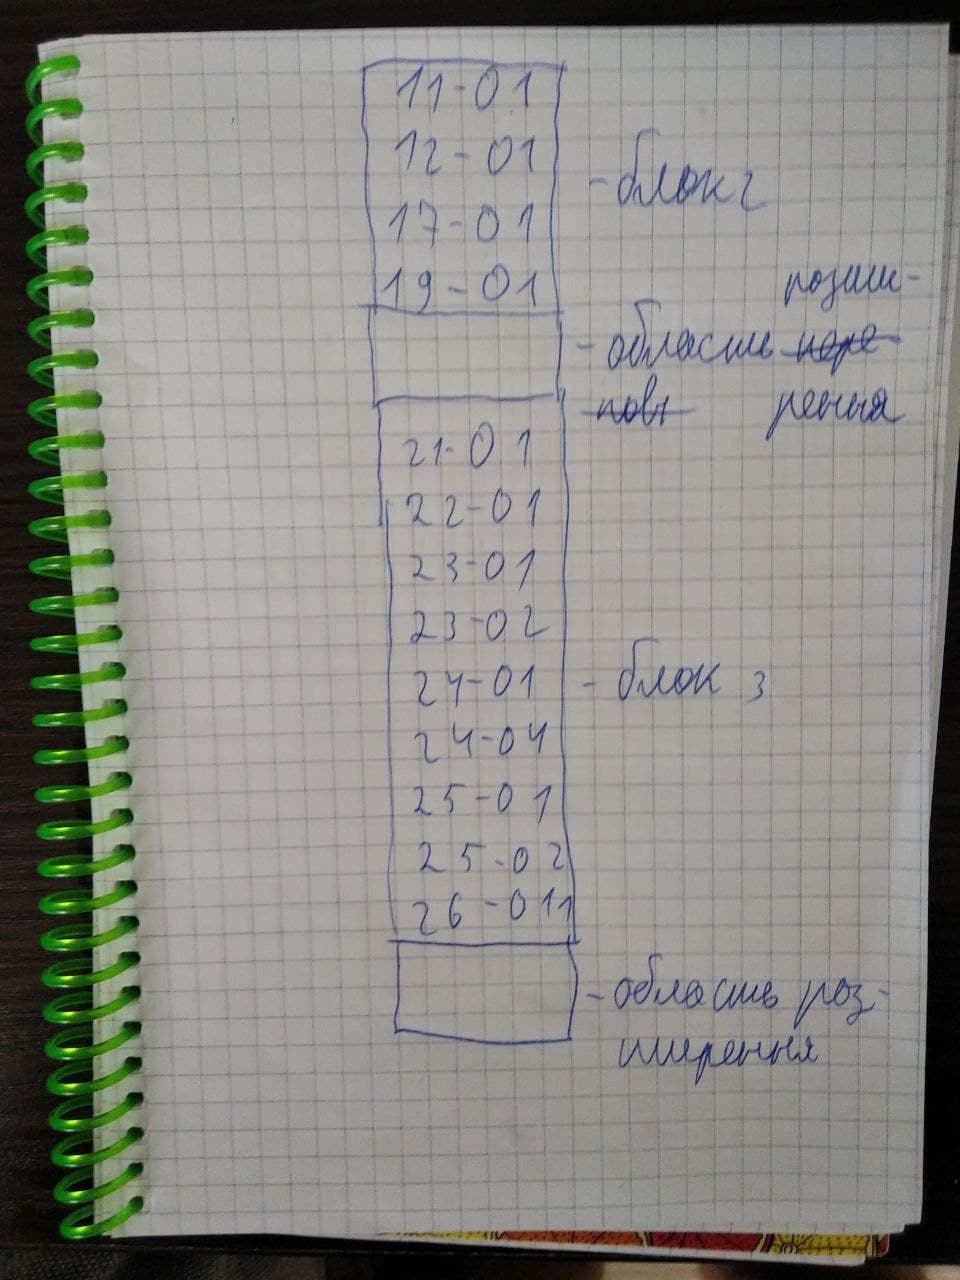 11-01
12-01
17-01
19-01
- блок 2
розши-
- область пере-
повн рення
21-01
22-01
23-01
23-02
24-01
24-04
25-01
25-02
26-011
- блок 3
- область роз-
ширення